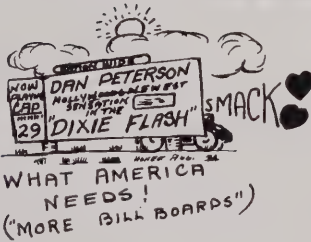 NOW
PLAYING
CAP
29
DAN PETERSON
HOLLYWOOD NEWEST
SENSATION
IN THE
"DIXIE FLASH"
SMACK
WHAT AMERICA
NEEDS!
("MORE BILL BOARDS")